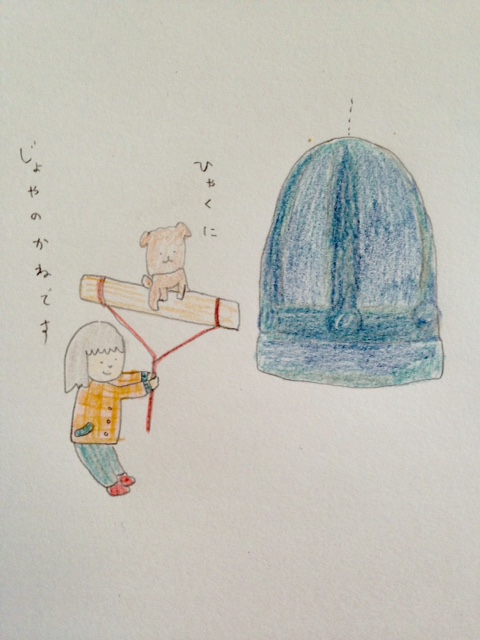 ひゃくに
じょやのかねです